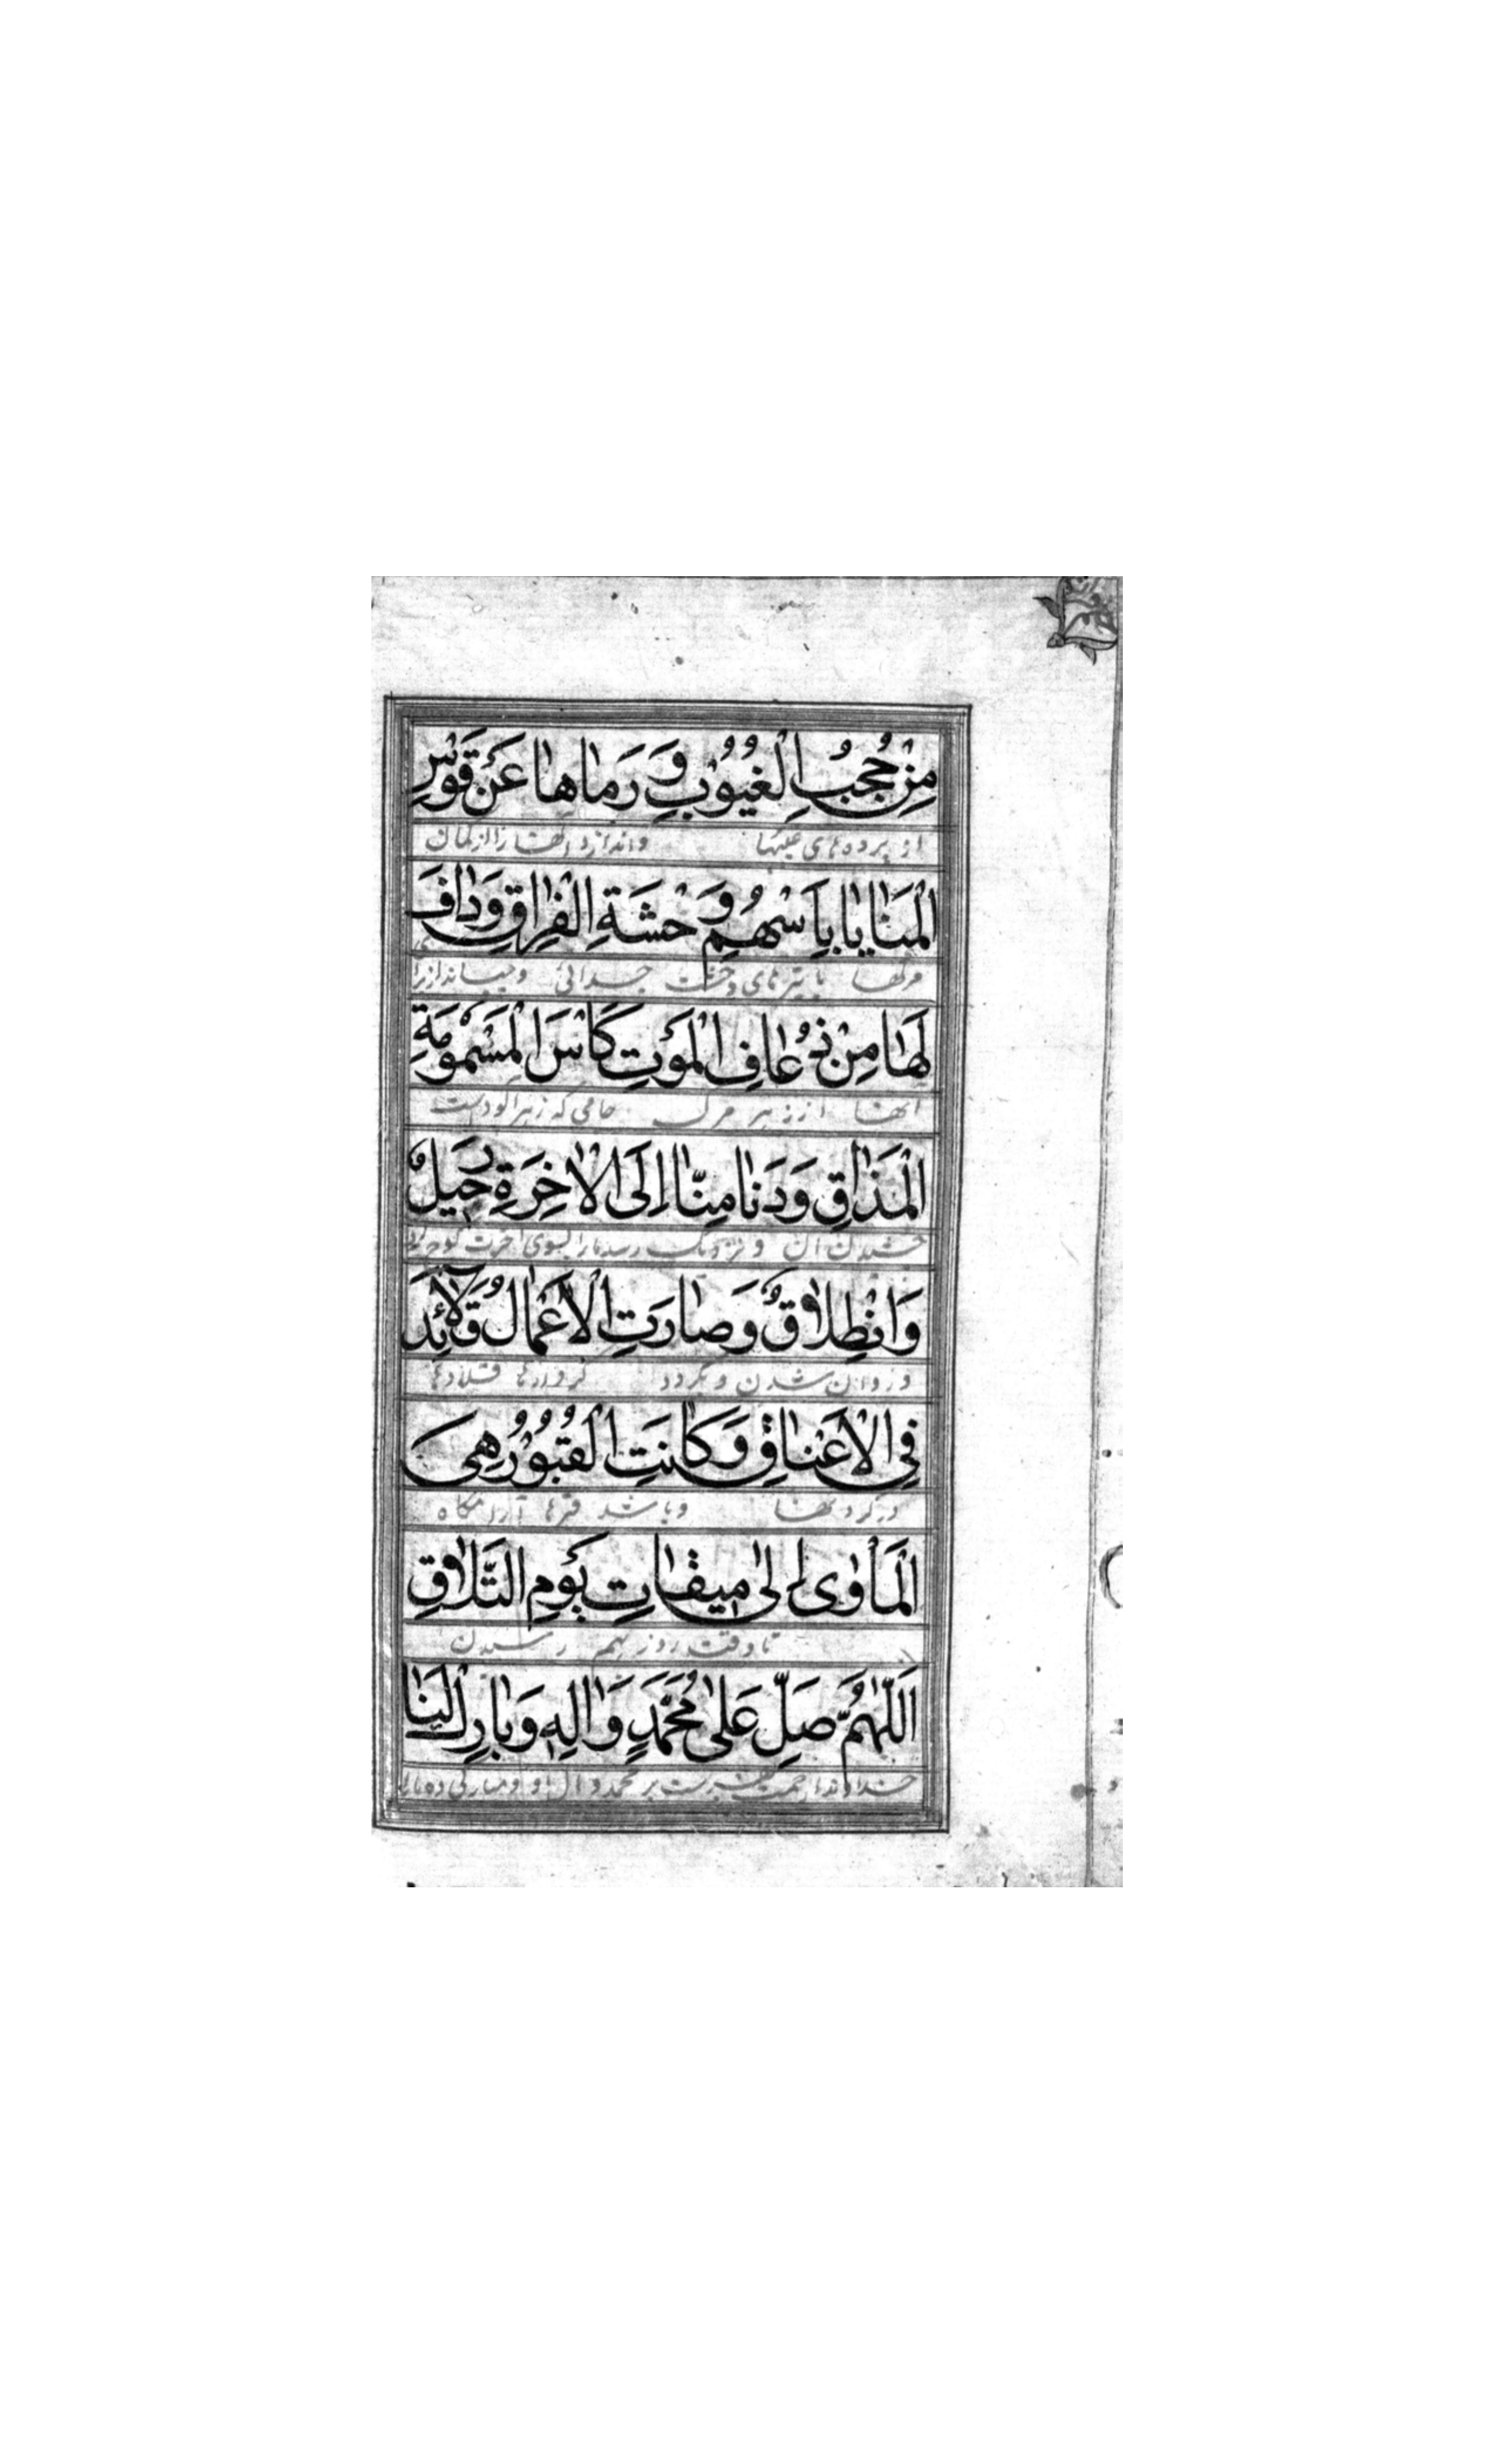 مِنْ حُجُبِ الْغُیُوْبِ وَ رَمَاهَا عَنْ قَوْسِ
از پرده‌های غیبها و اندازد آنها را از کمان
الْمَنَایَا بِاَسْهُمِ وَحْشَةِ الْفِرَاقِ وَ دَافَ
مرگها با تیرهای وحشت جدائی و
لَهَا مِنْ ذُعَافِ الْمَوْتِ كَأْسًا مَسْمُوْمَةِ
آنها از زهر مرگ جامی که زهرآلودست
الْمَذَاقِ وَ دَنَا مِنَّا اِلَی الْاٰخِرَةِ رَحِیْلٌ
چشیدن آن و نزدیک رسد ما را بسوی آخرت
وَ انْطِلَاقٌ وَ صَارَتِ الْاَعْمَالُ قَلَائِدَ
و روان شدن و بگردد کردارها قلادها
فِی الْاَعْنَاقِ وَ كَانَتِ الْقُبُوْرُ هِیَ
در گردنها و باشد قبرها آرامگاه
الْمَأْوٰی اِلٰی مِیْقَاتِ یَوْمِ التَّلَاقِ
تا وقت روز بهم رسیدن
اَللّٰهُمَّ صَلِّ عَلٰی مُحَمَّدٍ وَ اٰلِهٖ وَ بَارِكْ لَنَا
خداوندا رحمت بفرست بر محمد و آل او و مبارکی ده ما را